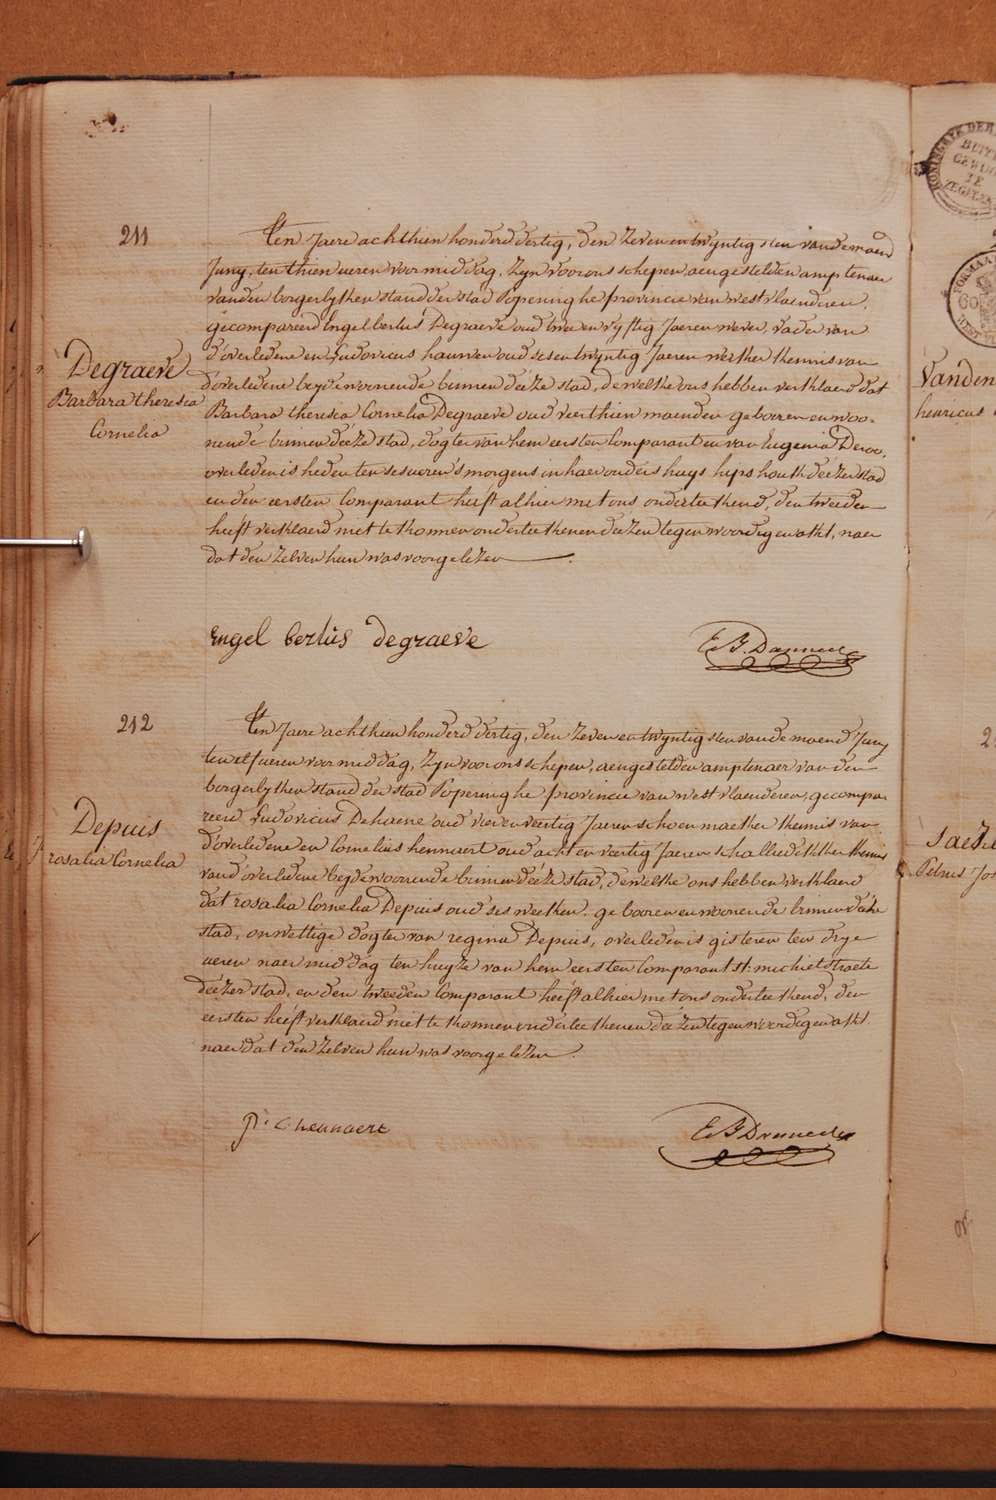 211
Degraeve
Barbara theresia
Cornelia
Ten Jaere achthien honderd dertig, den Zeven en twyntigsten vande maend
Juny, ten thien ueren voormiddag, Zyn voor ons schepen aengestelden amptenaer
van den borgerlyken stand der stad Poperinghe provincie van westvlaenderen,
gecompareerd Engelbertus Degraeve oud twee en vyftig Jaeren wever, vader van
d'overledene en Ludovicus hauwen oud ses en twyntig Jaeren werker kennis van
d'overledene beyde woonende binnen deéze stad, de welke ons hebben verklaerd dat
Barbara theresia Cornelia Degraeve oud veerthien maenden geboren en woo-
nende binnen deéze stad, dogter van hem eersten Comparant en van Eugenia Deroo,
overleden is heden ten ses ueren 's morgens in haer ouders huys hipshoek deézer stad
en den eersten Comparant heeft alhier met ons onderteekend, den tweeden
heeft verklaerd niet te konnen onderteekenen deézen tegenwoordigen akt, naer
dat den zelven hun was voorgelezen.
Engel bertús degraeve
212
Depuis
rosalia Cornelia
Ten Jaere achthien honderd dertig, den Zeven en twyntigsten vande maend Juny
ten elf ueren voormiddag, Zyn voor ons schepen, aengestelden amptenaer van den
borgerlyken stand der stad Poperinghe provincie van westvlaenderen, gecompa-
reerd Ludovicus Dehaene oud vier en veertig Jaeren schoenmaeker kennis van
d'overledene en Cornelius hennaert oud acht en veertig Jaeren schalliedekker kennis
van d'overledene beyde woonende binnen deéze stad, de welke ons hebben verklaerd
dat rosalia Cornelia Depuis oud ses weeken, geboren en woonende binnen deéze
stad, onwettige dogter van regina Depuis, overleden is gisteren ten drye
ueren naer middag ten huyze van hem eersten Comparant st: michielstraete
deézer stad, en den tweeden Comparant heeft alhier met ons onderteekend, den
eersten heeft verklaerd niet te konnen onderteekenen deézen tegenwoordigen akt
naer dat den zelven hun was voorgelezen.
hennaert
Vanden
henricus
Petrus Jos